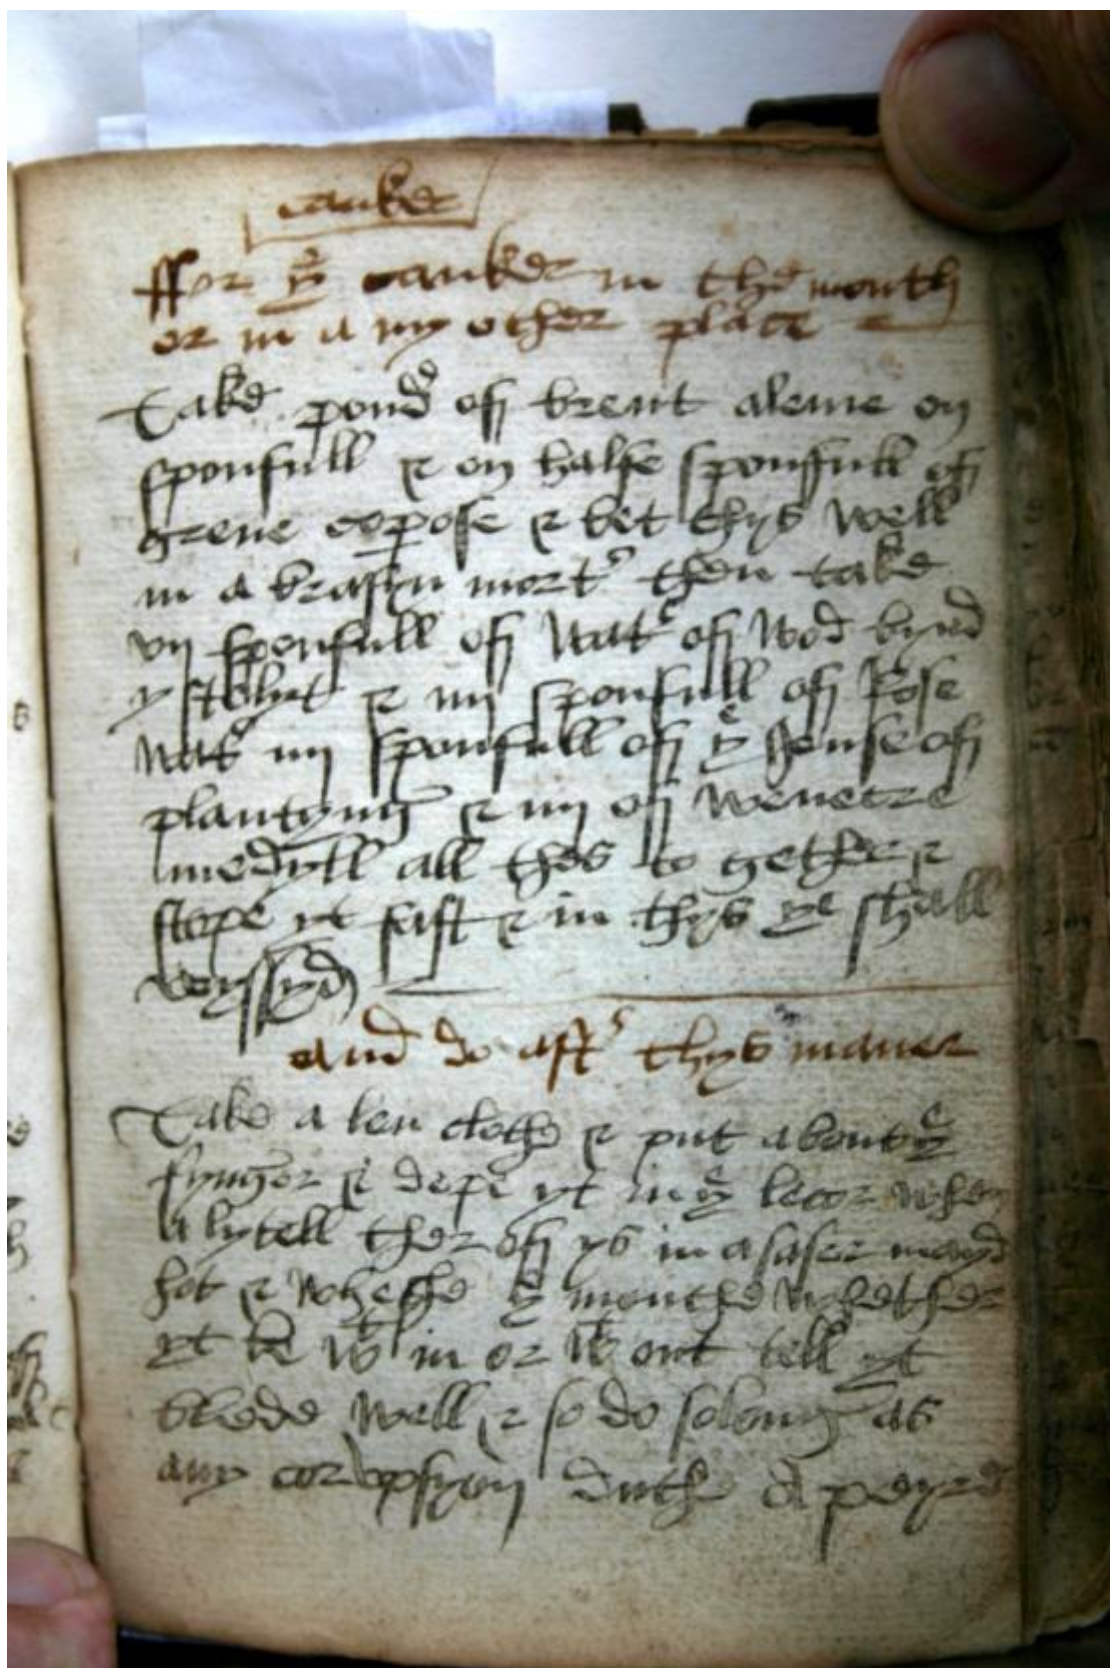 canker
ffor yͤ canker in the mouth
or in a ny other place
Take poudʳ off brent aleme on
sponfull & on halfe sponfull off
grene copose & bet thys well
in a brasyn mortʳ then take
vij sponfull off watʳ off wod bynd
ystylyt & iiij sponfull off Rose
watʳ iiij sponfull off yͤ Jeuse off
plantyng & iiij off wenecre
medyll all thes to gether &
stope yt fast & in thys yͤ shall
And do aftʳ thys maner
Take a len clothe & put about yͤ
fynger & depe yt in yͤ lecor when
a lytell ther off ys in a saser mayd
hot & wheshe yͤ mouthe whether
yt be wͭ in or wͭ out tell yt
blede well & so do solong as
any corvpsyon duthe apeyre